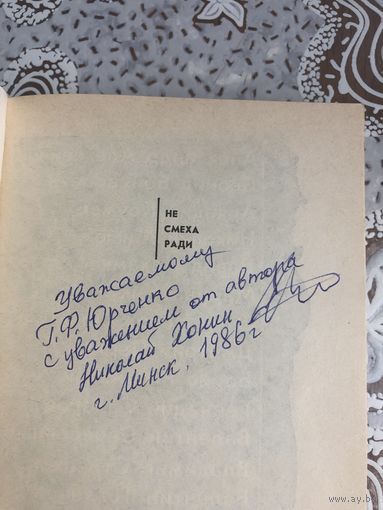 НЕ
СМЕХА
РАДИ
Уважаемому
Г.Ф. Юрченко
с уважением от автора
Николай Хонин
г. Минск, 1986 г
www.ay.by